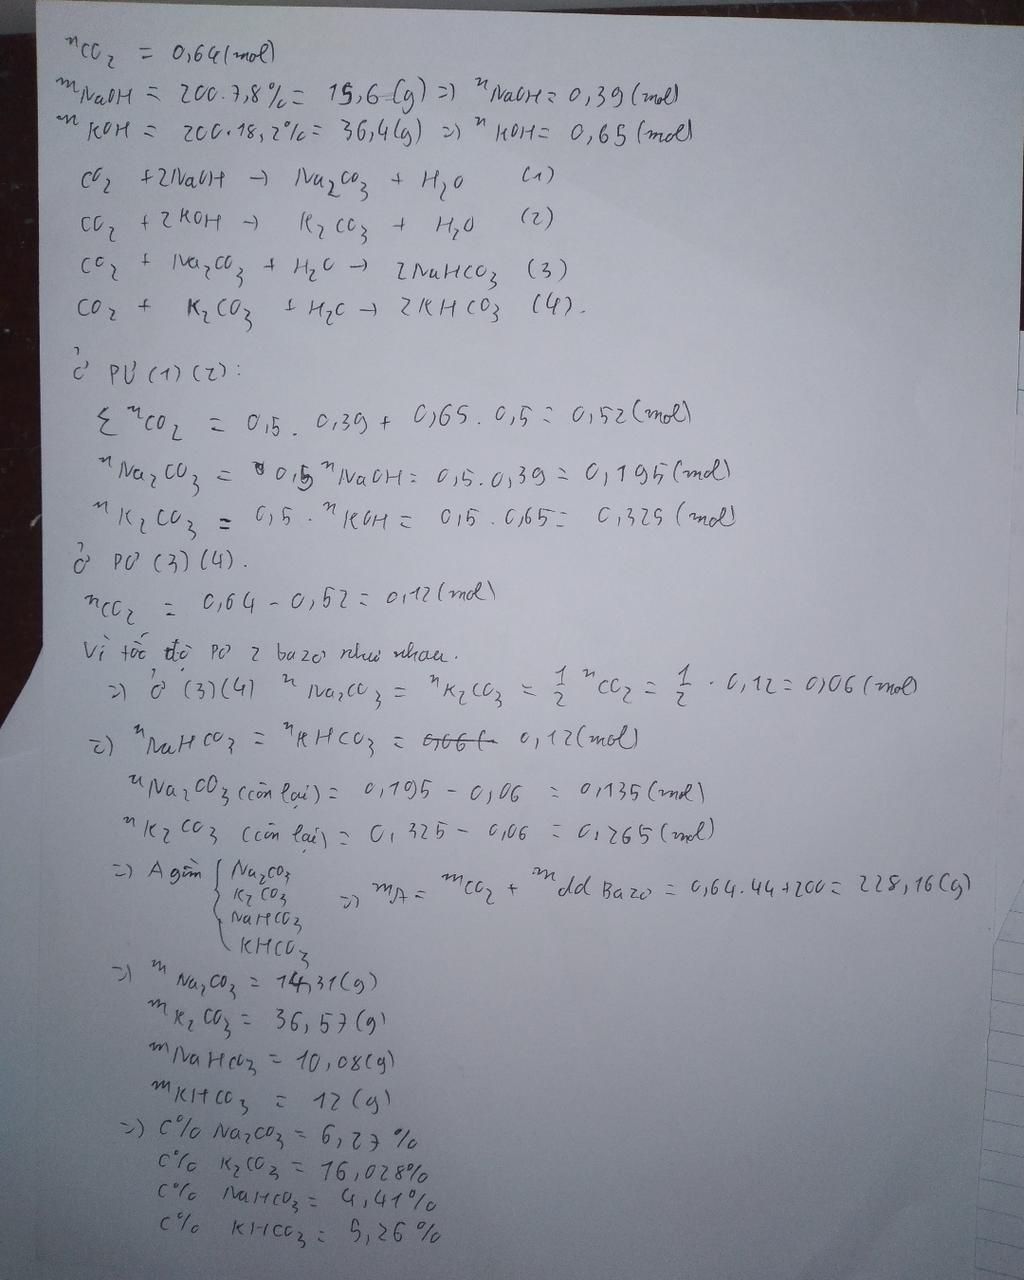 nCO2 = 0,64 (mol)
mNaOH = 200.7,8% = 15,6 (g) => nNaOH = 0,39 (mol)
mKOH = 200.18,2% = 36,4 (g) => nKOH = 0,65 (mol)
CO2 + 2NaOH → Na2CO3 + H2O (1)
CO2 + 2KOH → K2CO3 + H2O (2)
CO2 + Na2CO3 + H2O → 2NaHCO3 (3)
CO2 + K2CO3 + H2O → 2KHCO3 (4).
Ở PƯ (1) (2):
Σ nCO2 = 0,5 . 0,39 + 0,65 . 0,5 = 0,52 (mol)
nNa2CO3 = 0,5 nNaOH = 0,5.0,39 = 0,195 (mol)
nK2CO3 = 0,5 . nKOH = 0,5 . 0,65 = 0,325 (mol)
Ở PƯ (3) (4).
nCO2 = 0,64 - 0,52 = 0,12 (mol)
Vì tốc độ PƯ 2 bazo như nhau.
=> Ở (3)(4) nNa2CO3 = nK2CO3 = 1/2 nCO2 = 1/2 . 0,12 = 0,06 (mol)
=> nNaHCO3 = nKHCO3 = 0,12 (mol)
nNa2CO3 (còn lại) = 0,195 - 0,06 = 0,135 (mol)
nK2CO3 (còn lại) = 0,325 - 0,06 = 0,265 (mol)
=> A gồm { Na2CO3
K2CO3
NaHCO3
KHCO3
=> mA = mCO2 + mdd Bazo = 0,64.44+200 = 228,16 (g)
=> mNa2CO3 = 14,31 (g)
mK2CO3 = 36,57 (g)
mNaHCO3 = 10,08 (g)
mKHCO3 = 12 (g)
=> C% Na2CO3 = 6,27 %
C% K2CO3 = 16,028%
C% NaHCO3 = 4,41%
C% KHCO3 = 5,26 %